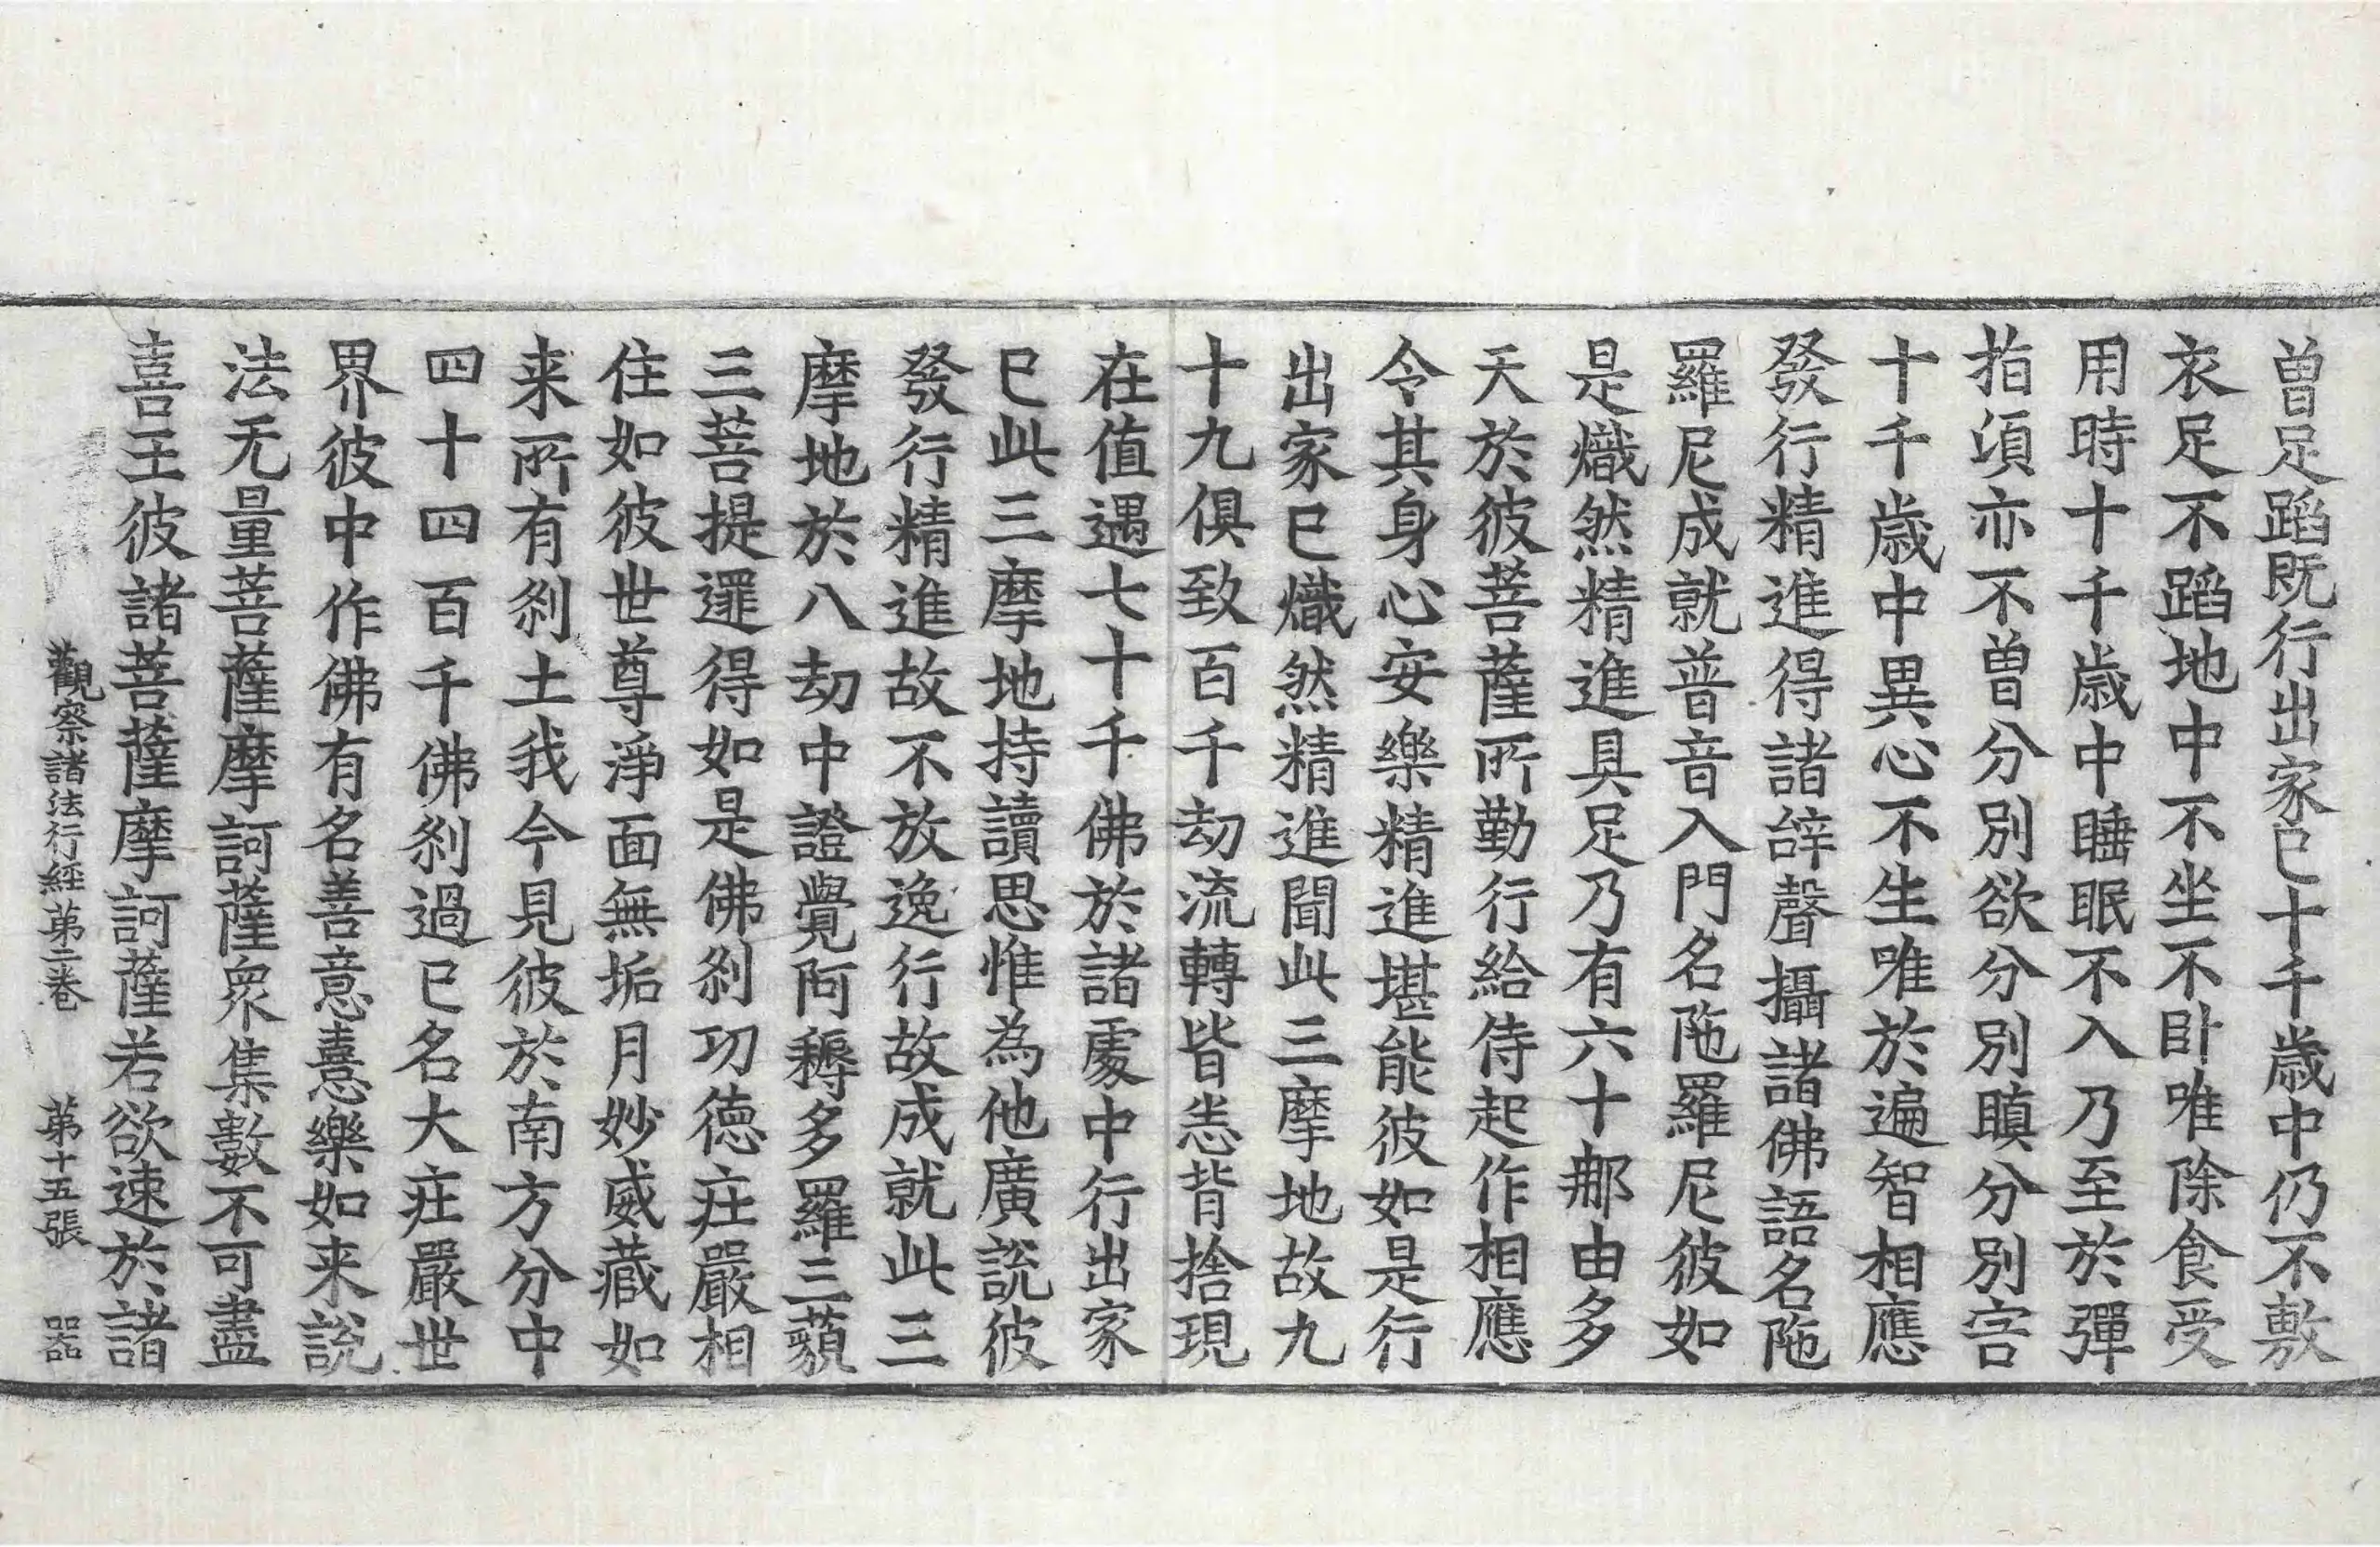 曽足蹈既行出家已十千歳中仍不敷
衣足不蹈地中不坐不卧唯除食受
用時十千歳中睡眠不入乃至於彈
指湏亦不曽分別欲分別瞋分別害
十千歳中異心不生唯於遍智相應
發行精進得諸辝聲攝諸佛語名陁
羅尼成就普音入門名陁羅尼彼如
是熾然精進具足乃有六十那由多
天於彼菩薩所勤行給侍起作相應
令其身心安樂精進堪能彼如是行
出家已熾然精進聞此三摩地故九
十九俱致百千劫流轉皆悉背捨現
在值遇七十千佛於諸處中行出家
已此三摩地持讀思惟為他廣說彼
發行精進故不放逸行故成就此三
摩地於八劫中證覺阿耨多羅三藐
三菩提還得如是佛刹功德庄嚴相
住如彼世尊淨面無垢月妙威藏如
来所有刹土我今見彼於南方分中
四十四百千佛刹過已名大庄嚴世
界彼中作佛有名善意憙樂如来說
法无量菩薩摩訶薩衆集數不可盡
喜王彼諸菩薩摩訶薩若欲速於諸
觀察諸法行經第二卷 第十五張 器